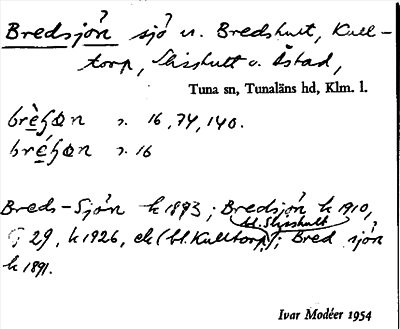 Bredsjön sjö v. Bredshult, Kull-
torp, Slisshult o. Åstad,
Tuna sn, Tunaläns hd, Klm. l.
16, 74, 140.
16
Breds-Sjön k 1893; Bredsjön k 1910,
bl. Slisshult
29, k 1926, ek (bl. Kulltorp); Bred sjön
k 1891.
Ivar Modéer 1954